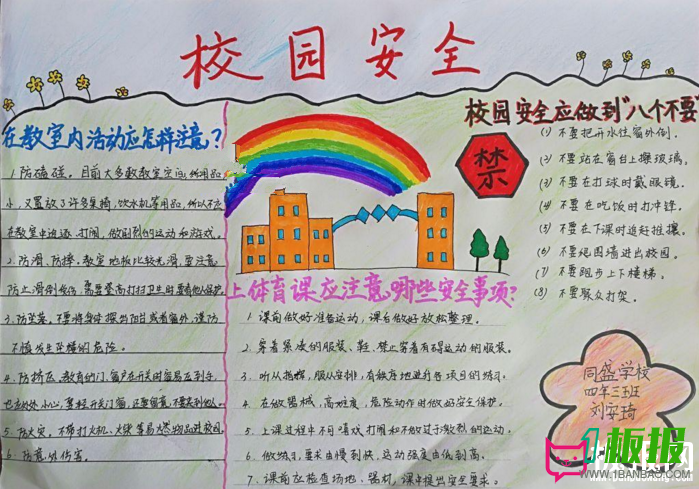 校园安全
在教室内活动应怎样注意?
1.防磕碰。目前大多数教室空间
又置放了许多桌椅、饮水机等用品,所以不应
在教室中追逐、打闹,做剧烈的运动和游戏。
2.防滑、防摔。教室地板比较光滑,要注意
防止滑倒
3.防坠落。不要将身体探出阳台或者窗外,谨防
不慎发生坠楼的危险。
4.防挤压。教室的门、窗户在开关时容易压到手,
5.防火灾。不带打火机、火柴等易燃物品进校园。
6.防意外伤害。
校园安全应做到"八个不要"
禁
(1) 不要把开水往窗外倒。
(2) 不要站在窗台上擦玻璃。
(3) 不要在打球时戴眼镜。
(4) 不要在吃饭时打冲锋。
(5) 不要在下课时追赶推攘。
(6) 不要爬围墙进出校园。
(7) 不要跑步上下楼梯。
(8) 不要聚众打架。
上体育课应注意哪些安全事项?
1.课前做好准备运动,课后做好放松整理。
2.穿着系
3.听从指挥,服从安排,有秩序地进行各项目的练习。
4.在做器械,高难度,危险动作时做好安全保护。
5.上课过程中不同嘻戏打闹和不做过于激烈的运动。
6.做练习,要求由慢到快,运动强度由低到高。
7.课前应检查场地、器材,课中提出安全要求。
同盛学校
四年三班
刘安琦
1板报
WWW.1BANBAO.COM